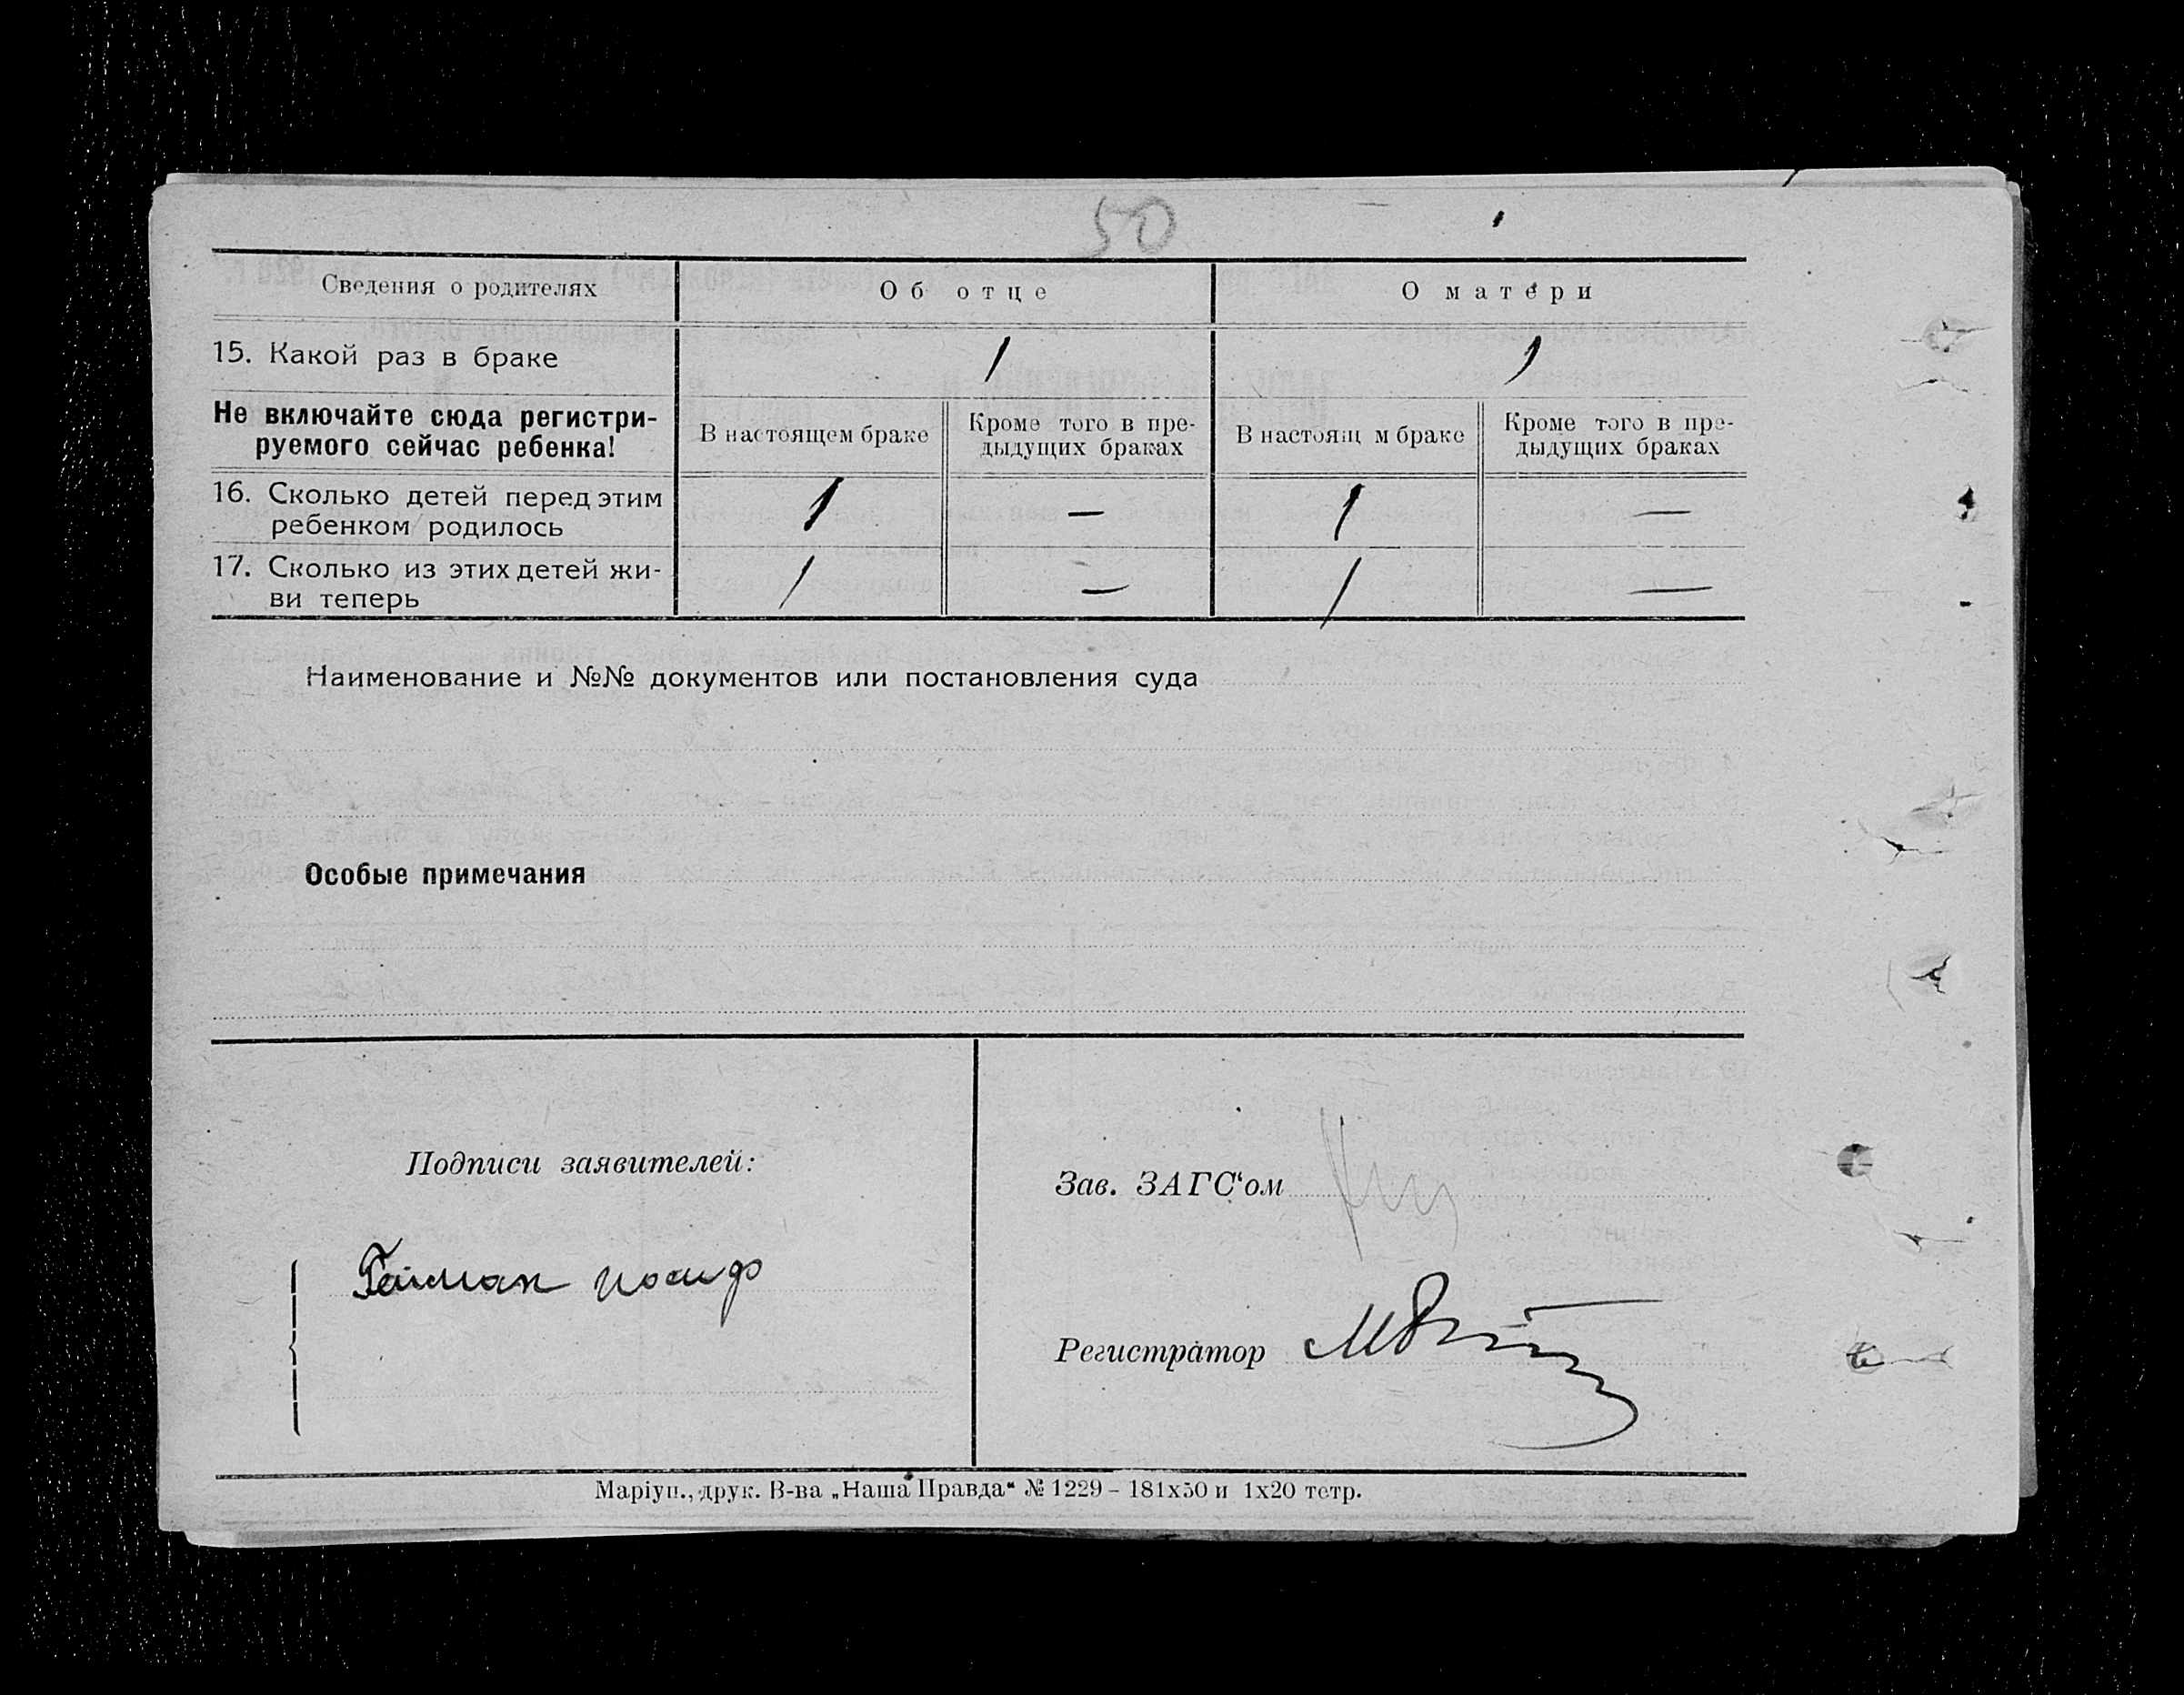 50
Сведения о родителях Об отце О матери
15. Какой раз в браке 1 1
Не включайте сюда регистри-
руемого сейчас ребенка!
В настоящем браке
Кроме того в пре-
дыдущих браках
В настоящ м браке
Кроме того в пре-
дыдущих браках
16. Сколько детей перед этим
ребенком родилось
1 — 1 —
17. Сколько из этих детей жи-
ви теперь
1 — 1 —
Наименование и №№ документов или постановления суда
Особые примечания
Подписи заявителей:
Гайсман иосиф
Зав. ЗАГС‘ом
Регистратор
Маріуп., друк. В-ва „Наша Правда“ № 1229 – 181х50 и 1х20 тетр.